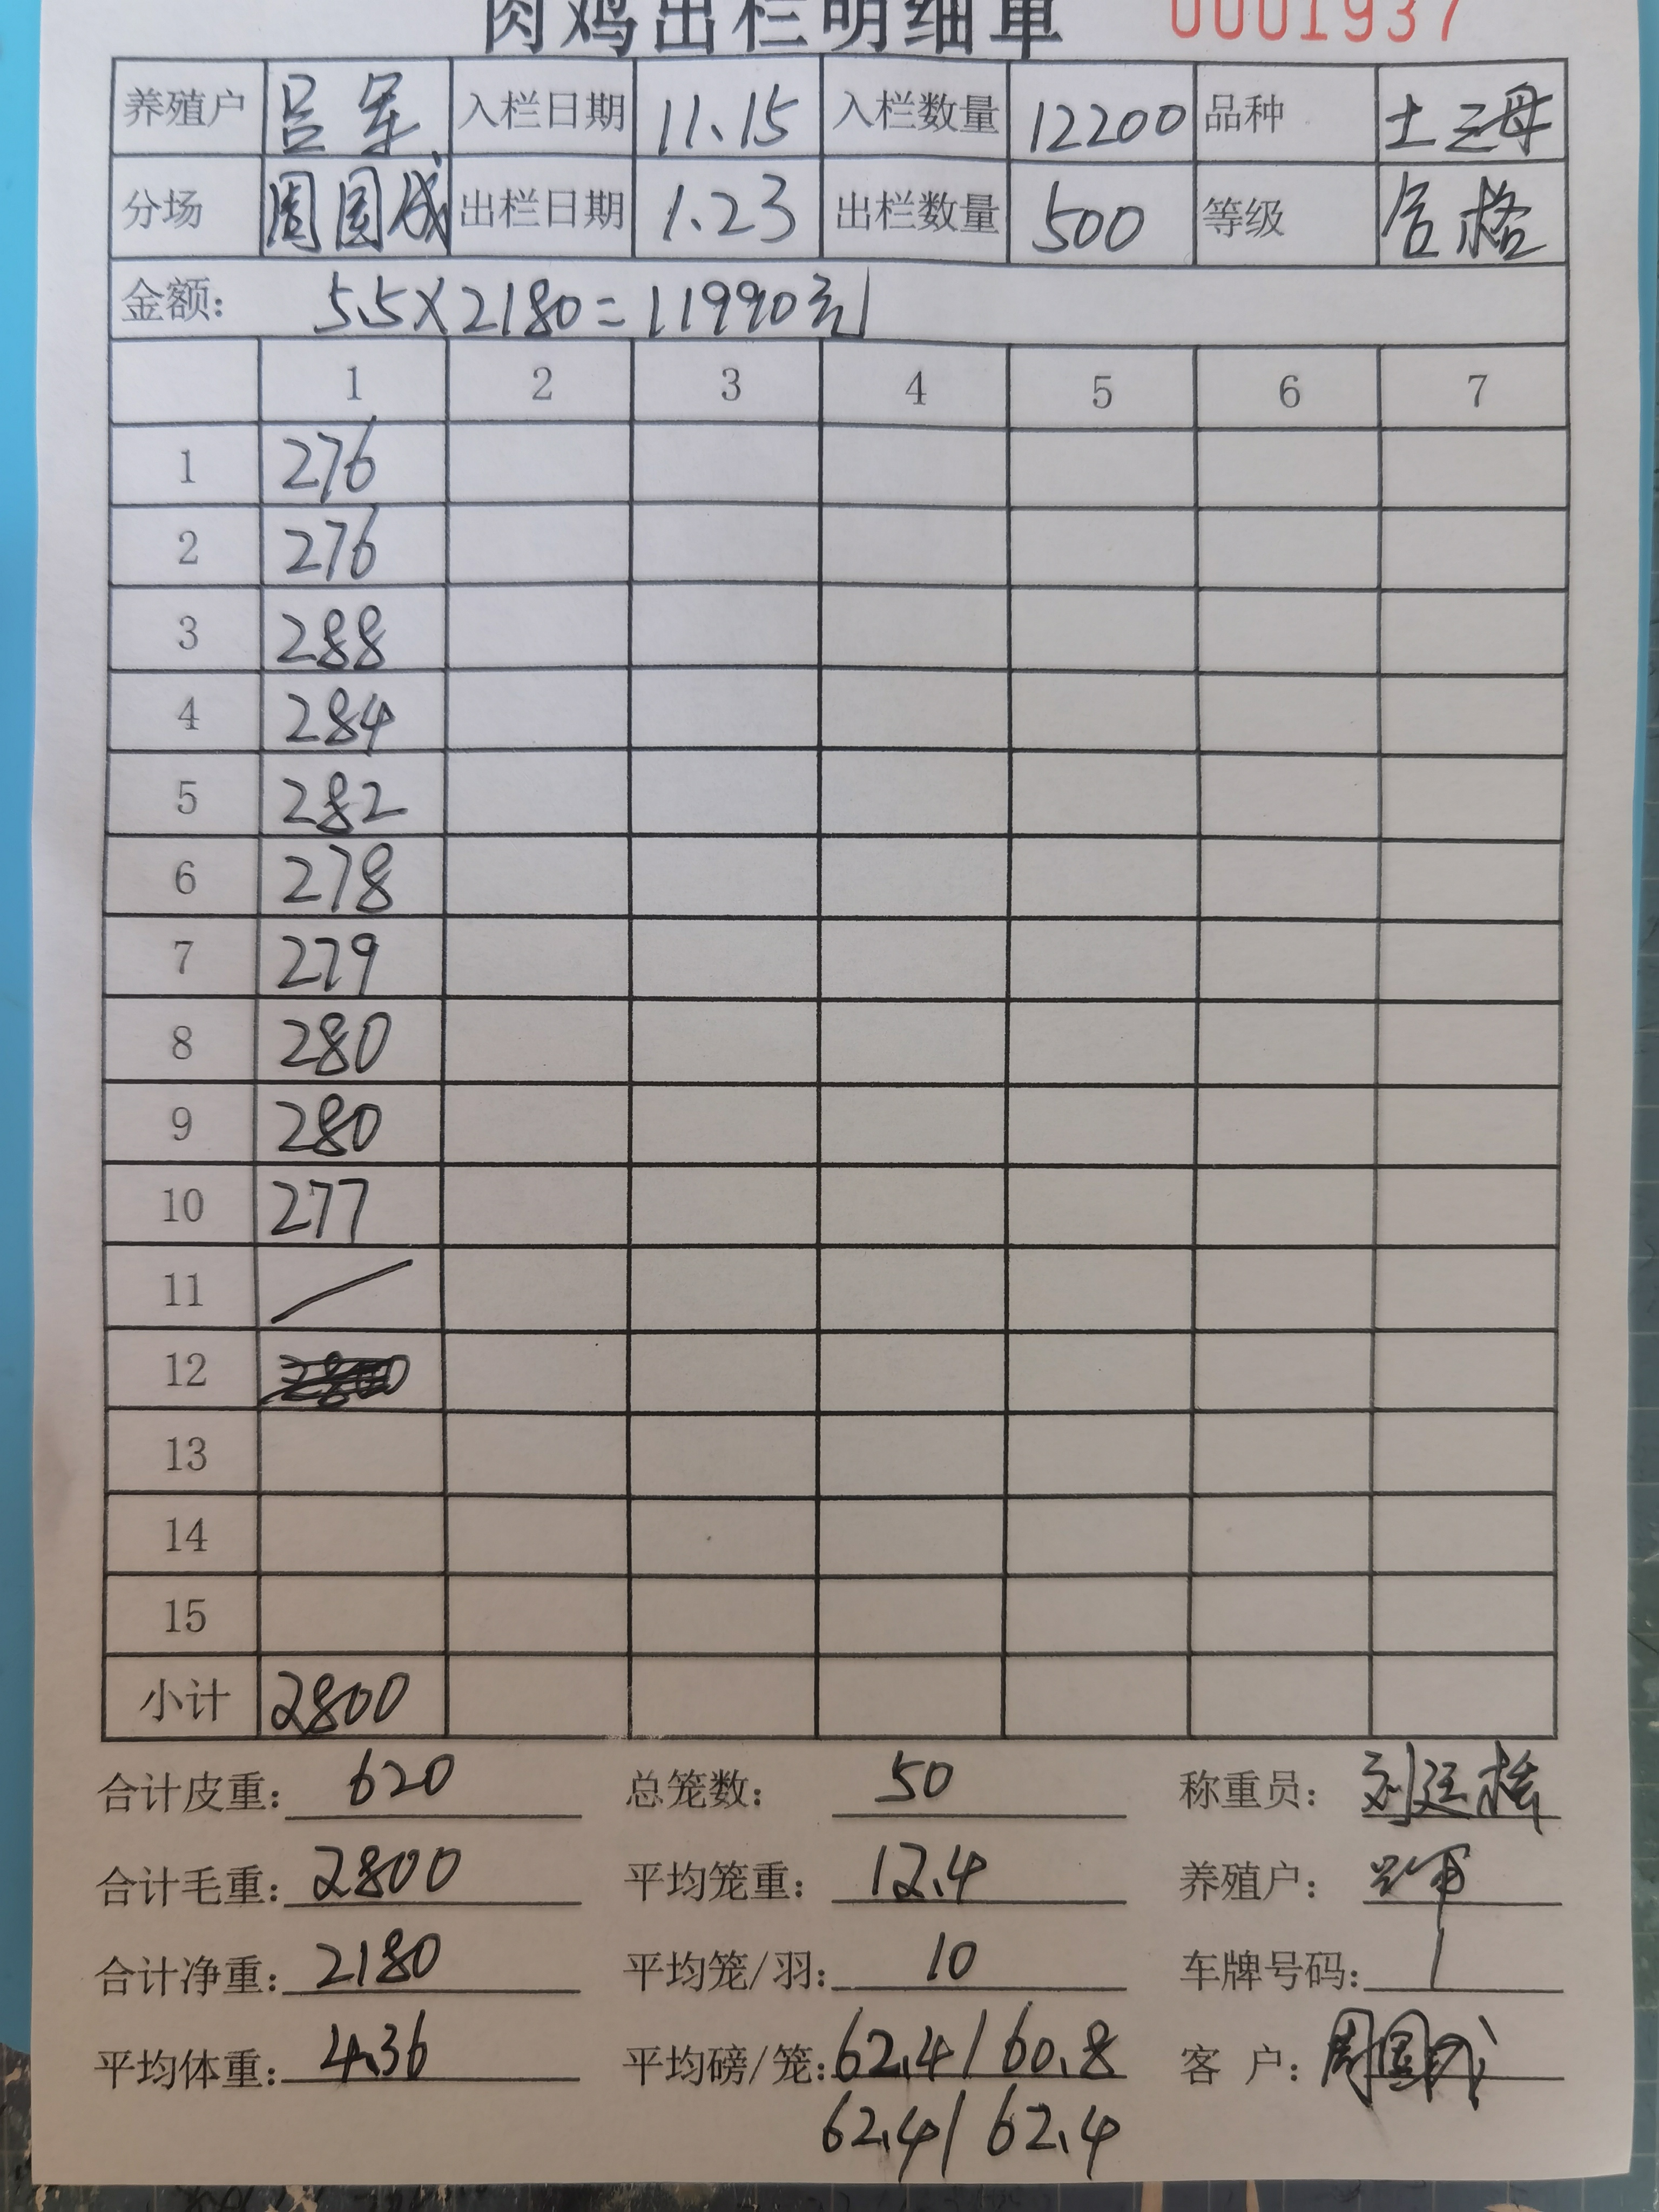 肉鸡出栏明细单 0001937
养殖户 吕军 入栏日期 11.15 入栏数量 12200 品种 土三母
分场 周国成 出栏日期 1.23 出栏数量 500 等级 合格
金额： 5.5×2180=11990元
1 2 3 4 5 6 7
1 276
2 276
3 288
4 284
5 282
6 278
7 279
8 280
9 280
10 277
11 /
12
13
14
15
小计 2800
合计皮重： 620 总笼数： 50 称重员：
合计毛重： 2800 平均笼重： 12.4 养殖户： 吕军
合计净重： 2180 平均笼/羽： 10 车牌号码： /
平均体重： 4.36 平均磅/笼： 62.4/60.8 客 户： 周国成
62.4/62.4